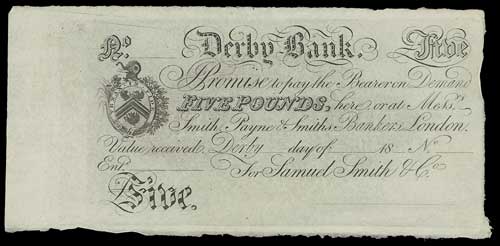 No. Derby Bank. Five
I Promise to pay the Bearer on Demand
FIVE POUNDS, here or at Messrs
Smith, Payne & Smiths Bankers London.
Value received, Derby day of 18 No
Entd. For Samuel Smith & Co.
Five.